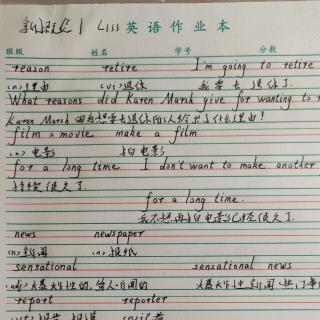 新概念 1 L155 英语作业本
班级 姓名 学号 分数
reason retire I'm going to retire
(n.)理由 (vi.)退休 我要去退休了.
What reasons did Karen Marsh give for wanting to
Karen Marsh 因为想要去退休所以给出了什么理由!
film = movie make a film
(n.) 电影 拍电影
for a long time I don't want to make another
持续很久了.
for a long time.
我不想再拍电影已经很久了.
news newspaper
(n)新闻 (n.)报纸
sensational sensational news
(adj.)爆炸性的, 耸人听闻的 爆炸性新闻
report reporter
(vt.)报告, 报道 (n.)记者